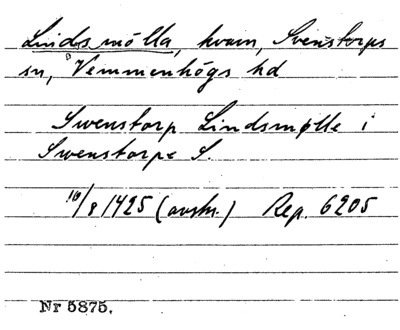 Lindsmölla, kvarn, Svenstorps
sn, Vemmenhögs hd
Swenstorp Lindsmølle i
Swenstorpe S.
10/8 1425 (avskr.) Rep. 6205
Nr 5875.